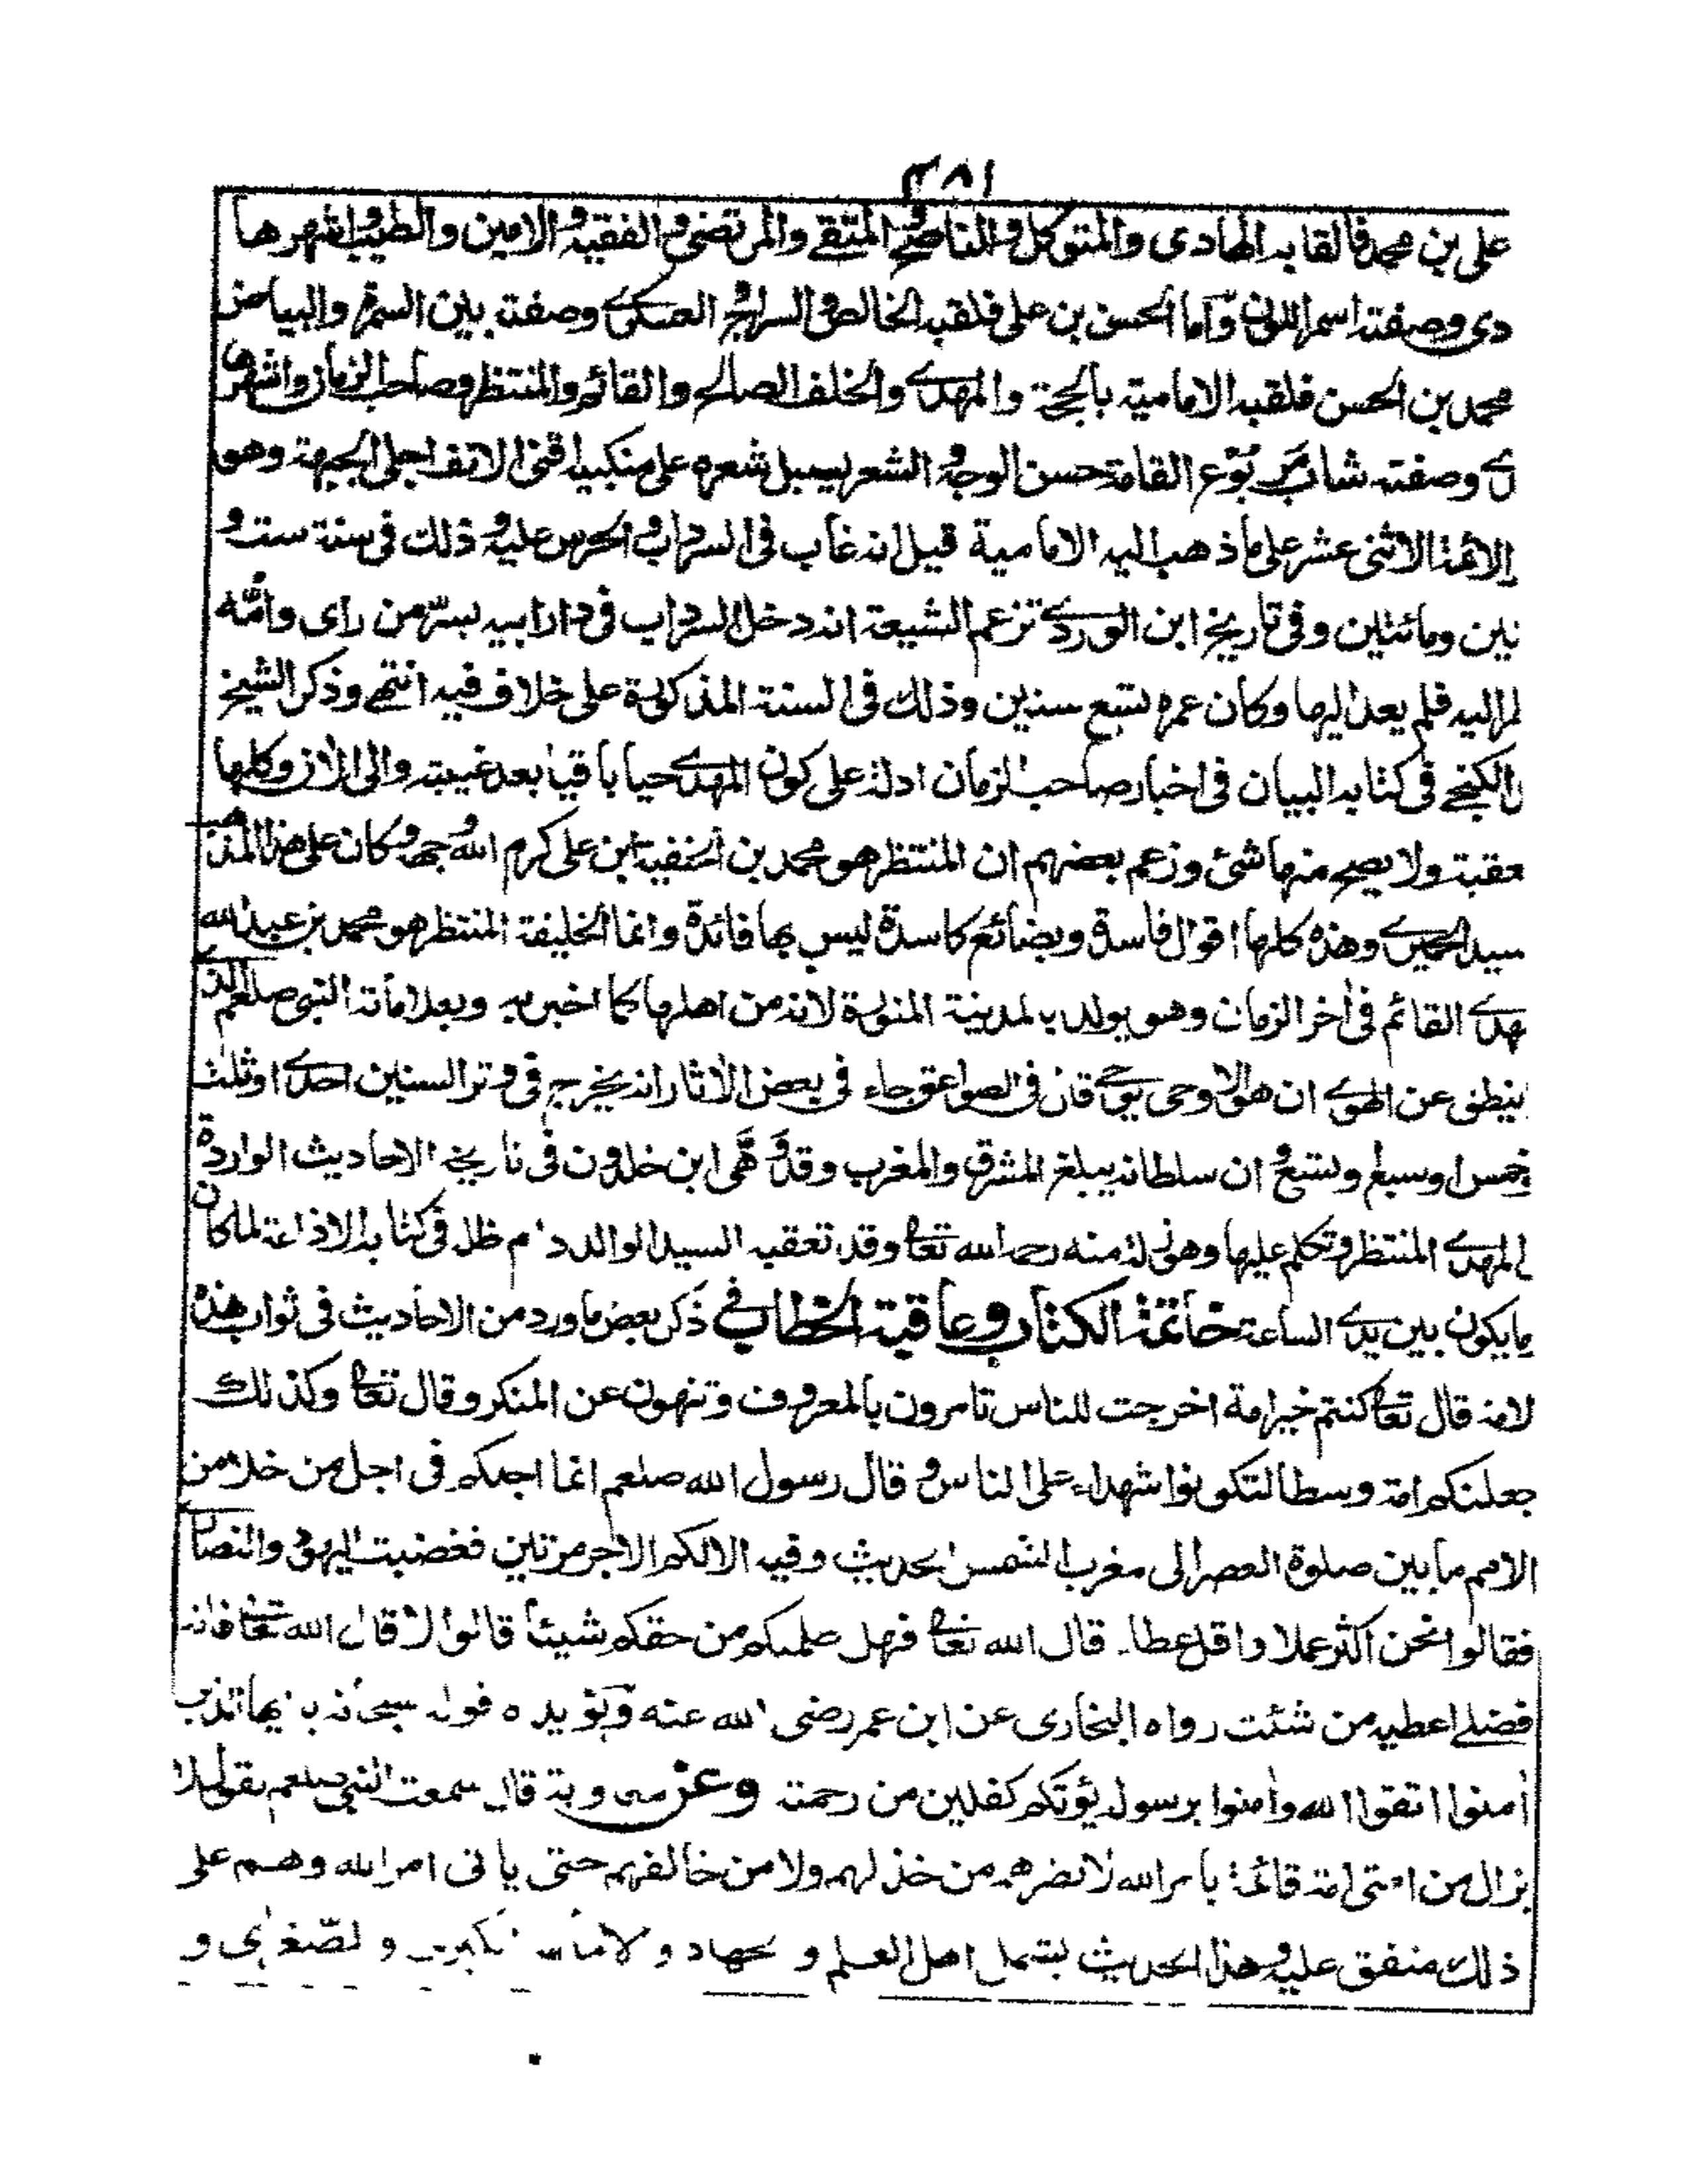 ٣٨١
على بن محمد فالقابه الهادى والمتوكل والناصح والمتقى والمرتضى والفقيه والامين والطيب واشهرها
دى وصفته اسمر اللون وأما الحسن بن على فلقبه الخالص والسراج والعسكرى وصفته بين السمرة والبياض
محمد بن الحسن فلقبه الامامية بالحجة والمهدى والخلف الصالح والقائم والمنتظر وصاحب الزمان واشهرها
ى وصفته شاب مربوع القامة حسن الوجه والشعر يسيل شعره على منكبيه اقنى الانف اجلى الجبهة وهو
الائمة الاثنى عشر على ما ذهب اليه الامامية قيل انه غاب فى السرداب والحرس عليه وذلك فى سنة ست و
تين ومائتين وفى تاريخ ابن الوردى تزعم الشيعة انه دخل السرداب فى دار ابيه بسرّ من راى وأمّه
ظر اليه فلم يعد اليها وكان عمره تسع سنين وذلك فى السنة المذكورة على خلاف فيه انتهى وذكر الشيخ
الكنجى فى كتابه البيان فى اخبار صاحب الزمان ادلة على كون المهدى حيا باقيا بعد غيبته والى الان وكلها
تعقبت ولا يصح منها شئ وزعم بعضهم ان المنتظر هو محمد بن الحنفية ابن على كرم الله وجهه وكان على هذا المذهب
سيد الحميرى وهذه كلها اقوال فاسدة وبضائع كاسدة ليس بها فائدة وانما الخليفة المنتظر هو محمد بن عبد الله
هدى القائم فى أخر الزمان وهو يولد بالمدينة المنورة لانه من اهلها كما اخبر به وبعلاماته النبى صلعم الذى
ينطق عن الهوى ان هو الا وحى يوحى قال فى الصواعق جاء فى بعض الأثار انه يخرج فى وتر السنين احدى او ثلث
خمس او سبع وتسع و ان سلطانه يبلغ المشرق والمغرب وقد وَهّى ابن خلدون فى تاريخه الاحاديث الواردة
المهدى المنتظر وتكلم عليها وهو زلة منه رحمه الله تعالى وقد تعقبه السيد الوالد دام ظله فى كتابه الاذاعة لما كان
ما يكون بين يدى الساعة خاتمة الكتاب وعاقبة الخطاب فى ذكر بعض ما ورد من الاحاديث فى ثواب هذه
لامة قال تعالى كنتم خير امة اخرجت للناس تامرون بالمعروف وتنهون عن المنكر وقال تعالى وكذلك
جعلنكم امة وسطا لتكونوا شهداء على الناس و قال رسول الله صلعم انما اجلكم فى اجل من خلا من
الامم ما بين صلوة العصر الى مغرب الشمس الحديث وفيه الا لكم الاجر مرتين فغضبت اليهود والنصارى
فقالوا نحن اكثر عملا واقل عطاء قال الله تعالى فهل ظلمتكم من حقكم شيئاً قالوا لا قال الله تعالى فانه
فضلى اعطيه من شئت رواه البخارى عن ابن عمر رضى الله عنه ويؤيده قوله سبحانه يا ايها الذين
أمنوا اتقوا الله وأمنوا برسوله يؤتكم كفلين من رحمته وعن معوية قال سمعت النبى صلعم يقول لا
يزال من امتى امة قائمة بامر الله لا يضرهم من خذلهم ولا من خالفهم حتى ياتى امر الله وهم على
ذلك متفق عليه وهذا الحديث يشمل اهل العلم و الجهاد و الامامة الكبرى و الصغرى و